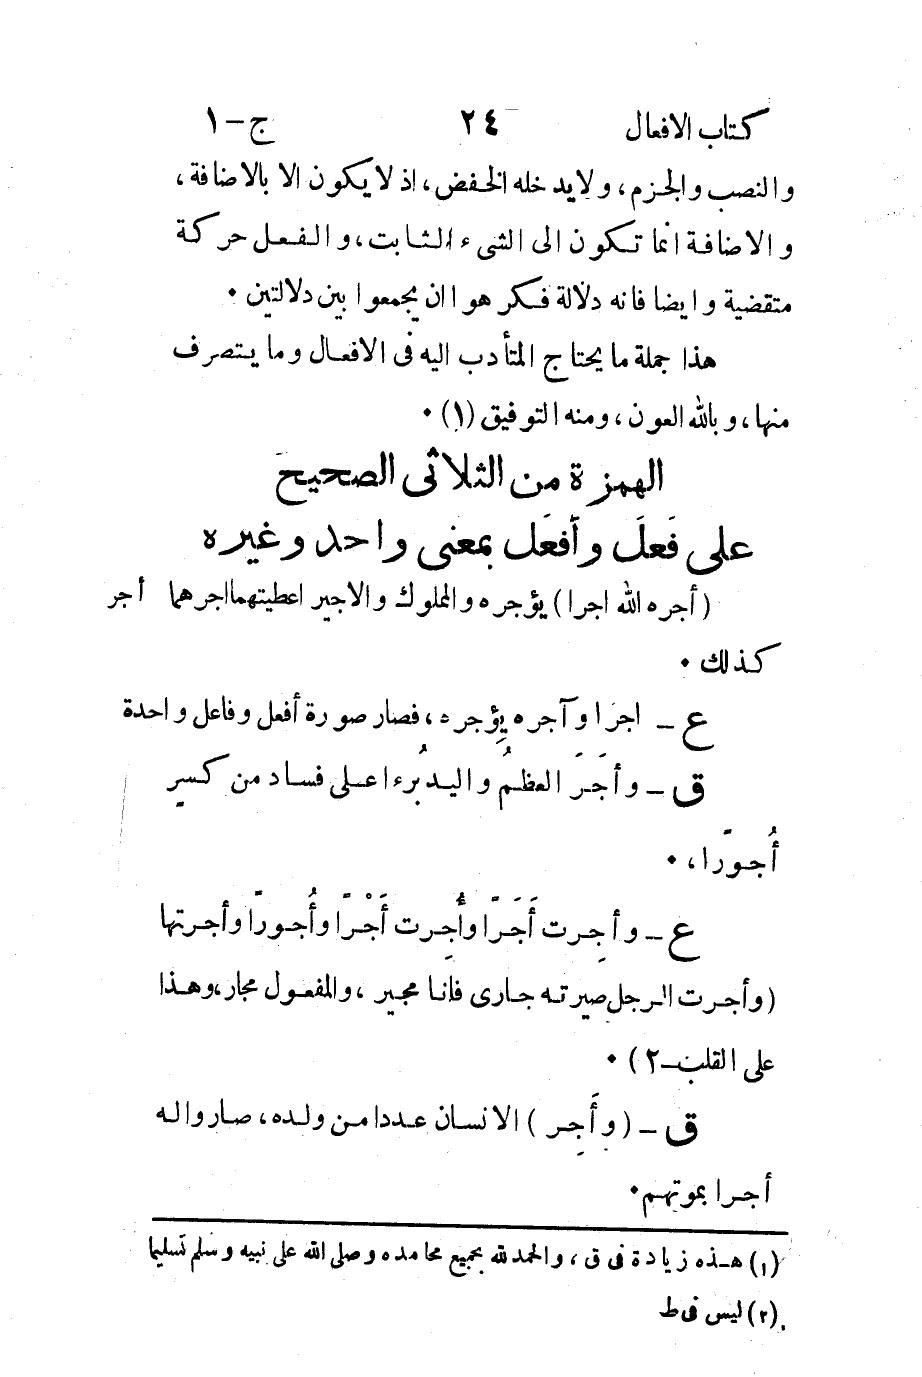 كتاب الافعال ٢٤ ج-١
والنصب والجزم، ولايدخله الخفض، اذ لا يكون الا بالاضافة،
والاضافة انما تكون الى الشىء الثابت، والفعل حركة
متقضية وايضا فانه دلالة فكرهوا ان يجمعوا بين دلالتين ٠
هذا جملة ما يحتاج المتأدب اليه فى الافعال وما يتصرف
منها، وبالله العون، ومنه التوفيق (١) ٠
الهمزة من الثلاثى الصحيح
على فَعلَ وأفعَل بمعنى واحد وغيره
(أجره الله اجرا) يؤجره والمملوك والاجير اعطيتهما اجرهما أجر
كذلك ٠
ع ــ اجرَا وآجره يؤجِره، فصار صورة أفعل وفاعل واحدة
ق ــ وأجَرَ العظمُ واليد بُرءا على فساد من كسرٍ
أُجورًا، ٠
ع ــ وأجِرت أَجَرًا وأُجِرت أَجْرًا وأُجورًا وأجرتها
(وأجرت الرجل صيرته جارى فانا مجير، والمفعول مجار، وهذا
على القلب ــ ٢) ٠
ق ــ (وأَجِر) الانسان عددا من ولده، صاروا له
أجرا بموتهم ٠
(١) هذه زيادة فى ق، والحمد لله بجميع محامده وصلى الله على نبيه وسلم تسليما
(٢) ليس فى ط